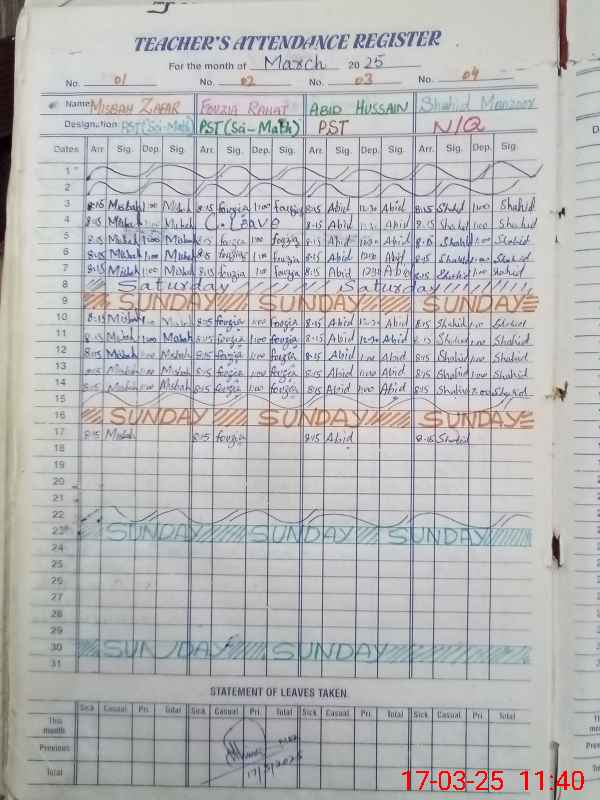 TEACHER'S ATTENDANCE REGISTER
For the month of March 2025
No. 01 No. 02 No. 03 No. 04
Name MISBAH ZAFAR FOUZIA RAHAT ABID HUSSAIN Shahid Manzoor
Designation PST(Sci-Math) PST(Sci-Math) PST N/Q
Dates Arr. Sig. Dep. Sig. Arr. Sig. Dep. Sig. Arr. Sig. Dep. Sig. Arr. Sig. Dep. Sig.
1
2
3 8:15 Misbah 1:00 Misbah 8:15 fouzia 1:00 fouzia 8:15 Abid 12:30 Abid 8:15 Shahid 1:00 Shahid
4 8:15 Misbah 1:00 Misbah C. Leave 8:15 Abid 12:30 Abid 8:15 Shahid 1:00 Shahid
5 8:15 Misbah 1:00 Misbah 8:15 fouzia 1:00 fouzia 8:15 Abid 12:30 Abid 8:15 Shahid 1:00 Shahid
6 8:15 Misbah 1:00 Misbah 8:15 fouzia 1:00 fouzia 8:15 Abid 12:30 Abid 8:15 Shahid 1:00 Shahid
7 8:15 Misbah 1:00 Misbah 8:15 fouzia 1:00 fouzia 8:15 Abid 12:30 Abid 8:15 Shahid 1:00 Shahid
8 Saturday Saturday
9 SUNDAY SUNDAY SUNDAY
10 8:15 Misbah 1:00 Misbah 8:15 fouzia 1:00 fouzia 8:15 Abid 12:30 Abid 8:15 Shahid 1:00 Shahid
11 8:15 Misbah 1:00 Misbah 8:15 fouzia 1:00 fouzia 8:15 Abid 12:30 Abid 8:15 Shahid 1:00 Shahid
12 8:15 Misbah 1:00 Misbah 8:15 fouzia 1:00 fouzia 8:15 Abid 1:00 Abid 8:15 Shahid 1:00 Shahid
13 8:15 Misbah 1:00 Misbah 8:15 fouzia 1:00 fouzia 8:15 Abid 1:00 Abid 8:15 Shahid 1:00 Shahid
14 8:15 Misbah 1:00 Misbah 8:15 fouzia 1:00 fouzia 8:15 Abid 1:00 Abid 8:15 Shahid 1:00 Shahid
15
16 SUNDAY SUNDAY SUNDAY
17 8:15 Misbah 8:15 fouzia 8:15 Abid 8:15 Shahid
18
19
20
21
22
23 SUNDAY SUNDAY SUNDAY
24
25
26
27
28
29
30 SUNDAY SUNDAY
31
STATEMENT OF LEAVES TAKEN
Sick Casual Pri. Total Sick Casual Pri. Total Sick Casual Pri. Total Sick Casual Pri. Total
This month
Previous
Total
17/3/2025
17-03-25 11:40